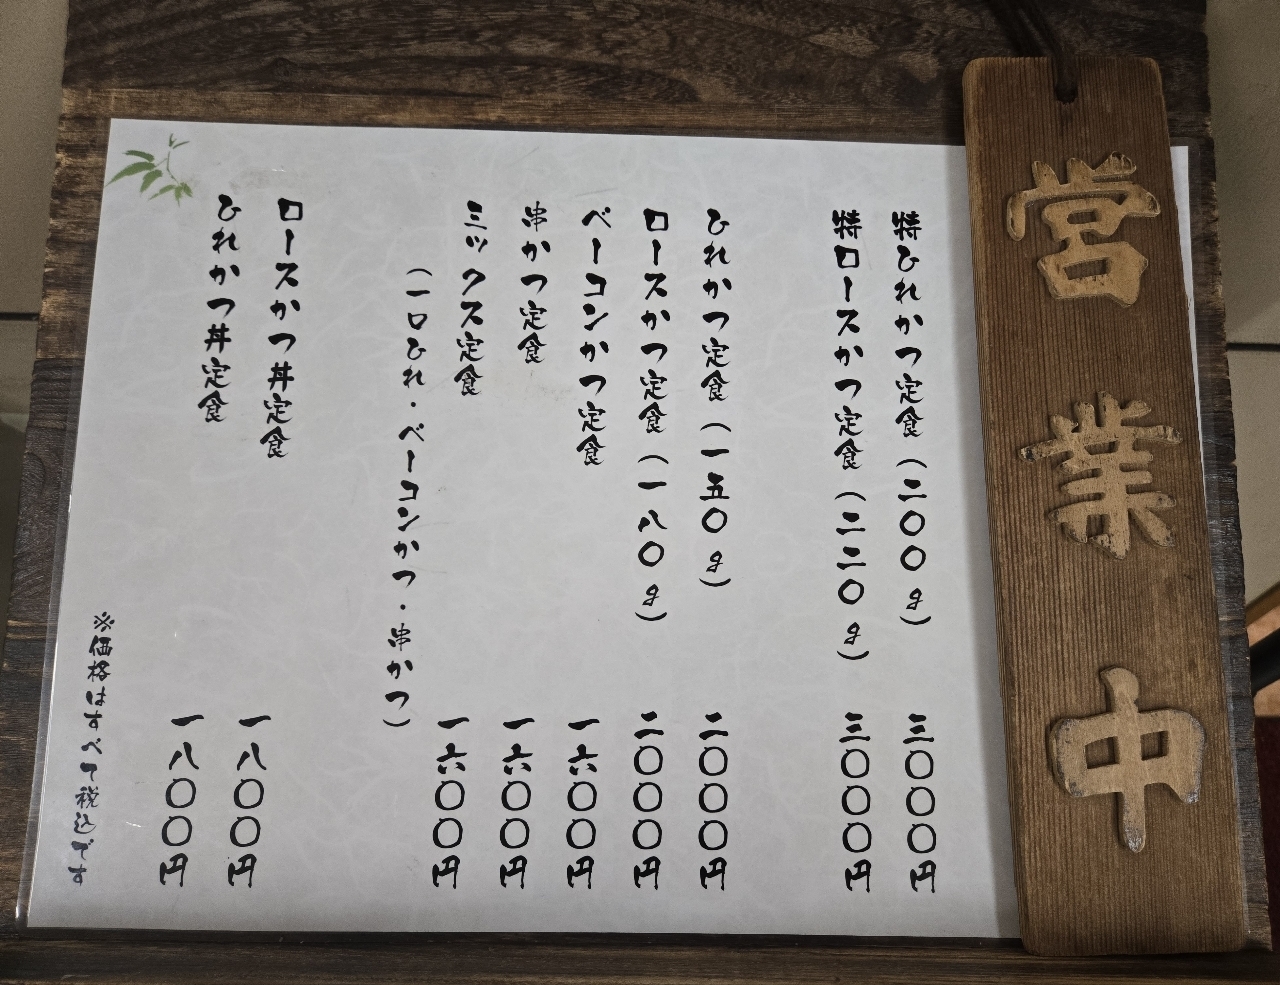 営業中
特ひれかつ定食（二〇〇g） 三〇〇〇円
特ロースかつ定食（二二〇g） 三〇〇〇円
ひれかつ定食（一五〇g） 二〇〇〇円
ロースかつ定食（一八〇g） 二〇〇〇円
ベーコンかつ定食 一六〇〇円
串かつ定食 一六〇〇円
ミックス定食 一六〇〇円
（一口ひれ・ベーコンかつ・串かつ）
ロースかつ丼定食 一八〇〇円
ひれかつ丼定食 一八〇〇円
※価格はすべて税込です